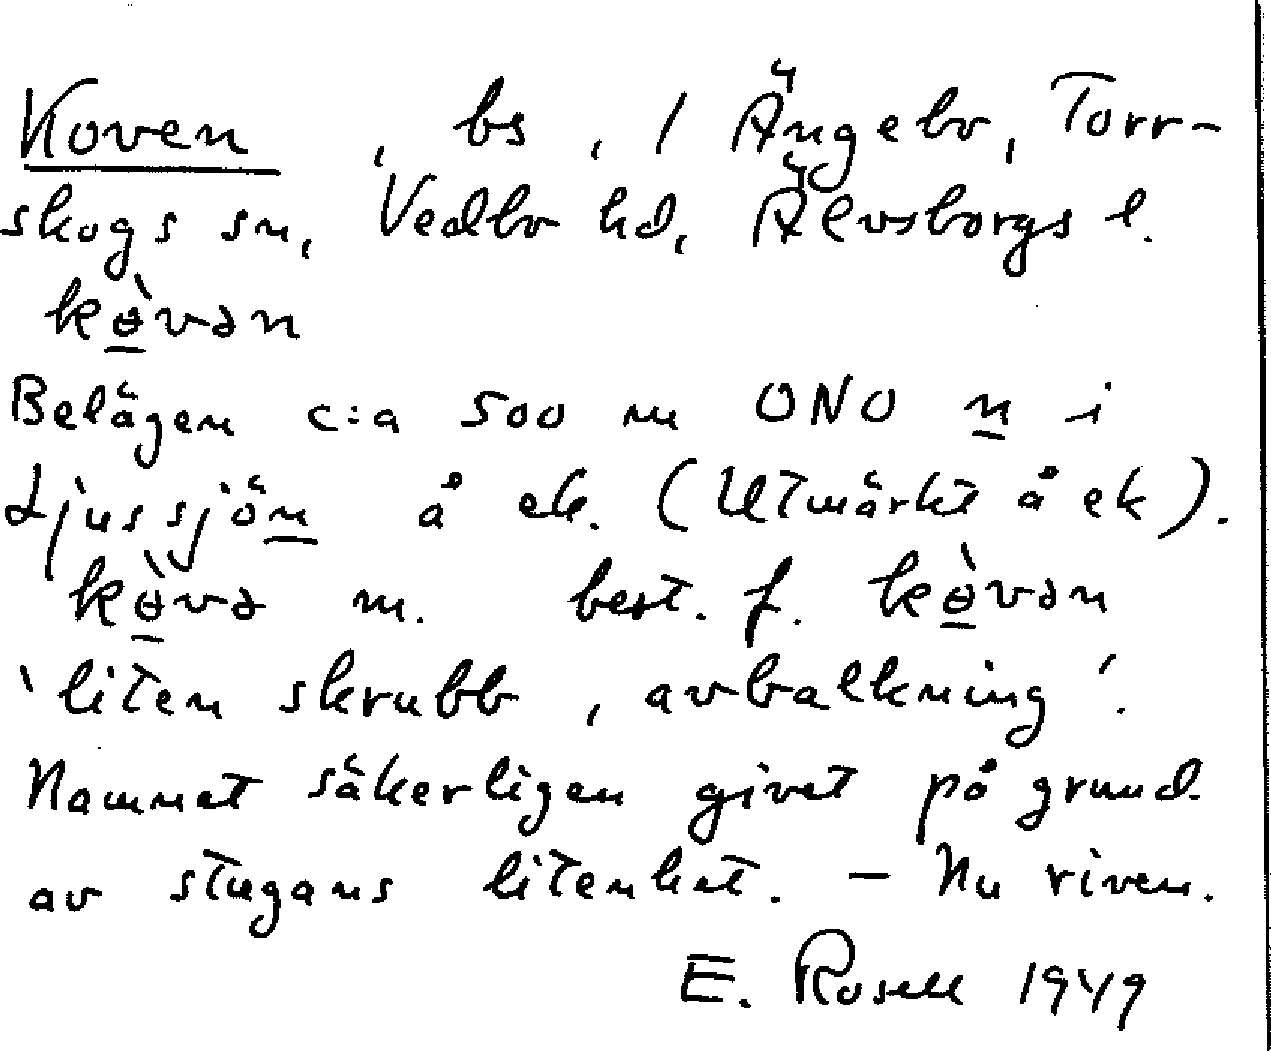 Koven, bs, 1 Ängebo, Torr-
skogs sn, Vedbo hd, Älvsborgs l.
kɵ̀vən
Belägen c:a 500 m ONO n i
Ljussjön å ek. (Utmärkt å ek).
kɵ̀və m. best. f. kɵ̀vən
'liten skrubb, avbalkning'.
Namnet säkerligen givet på grund
av stugans litenhet. — Nu riven.
E. Rosell 1949